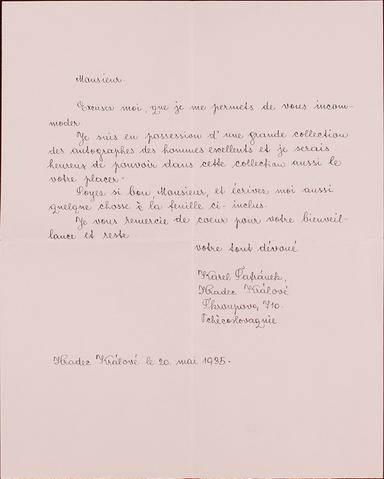 Monsieur.
Excusez moi, que je me permets de vous incom-
moder.
Je suis en possession d'une grande collection
des autographes des hommes excellents et je serais
heureux de pouvoir dans cette collection aussi le
votre placer.
Soyes si bon Monsieur, et écrives moi aussi
quelque chose à la feuille ci-inclus.
Je vous remercie de coeur pour votre bienveil-
lance et reste
votre tout dévoué
Karel Šafránek,
Hradec Králové
Škroupova, 710.
Tchécoslovaquie
Hradec Králové le 20. mai 1935.